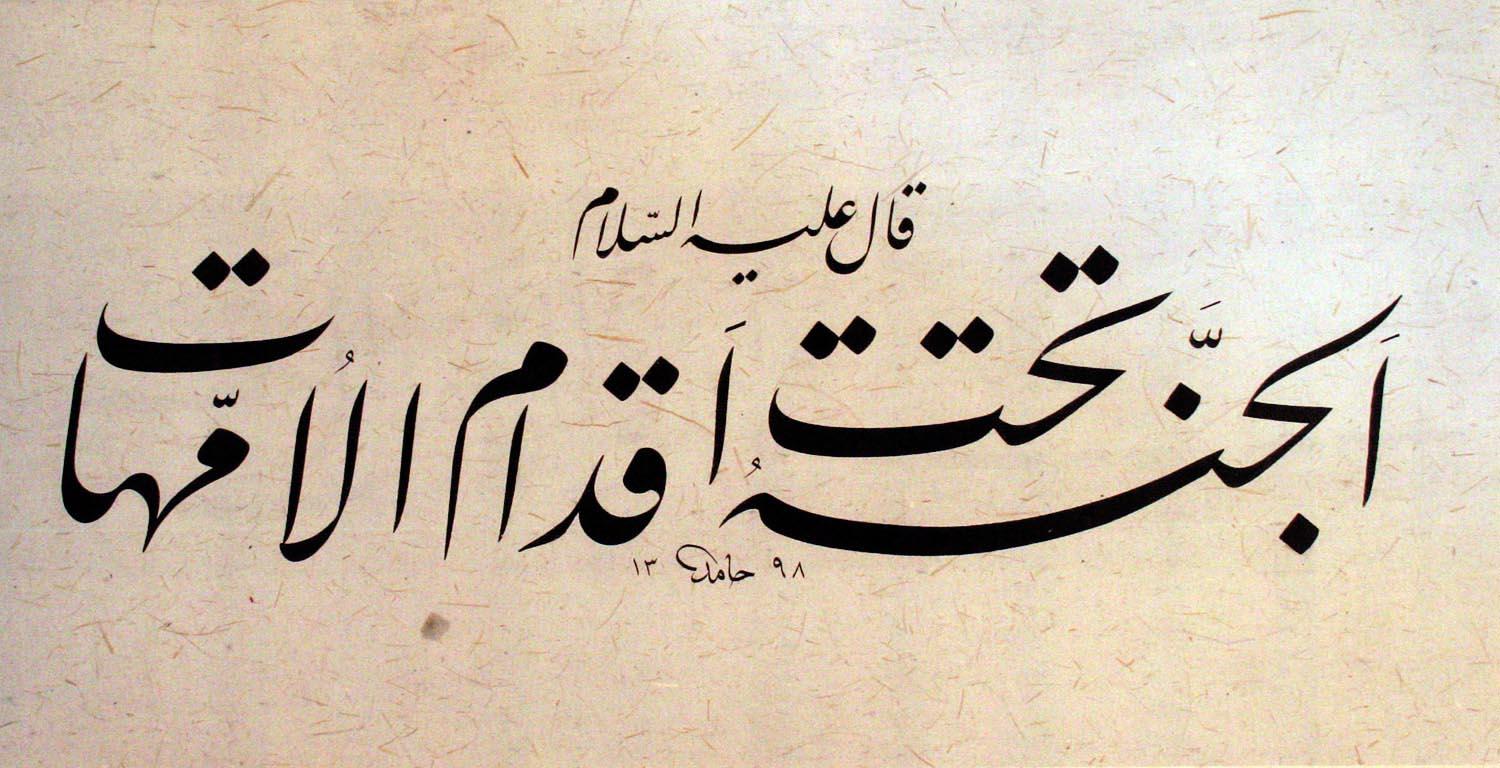 قال عليه السّلام
اَلجنَّةُ تحت اَقدام الاُمّهات
٩٨ حامد ١٣